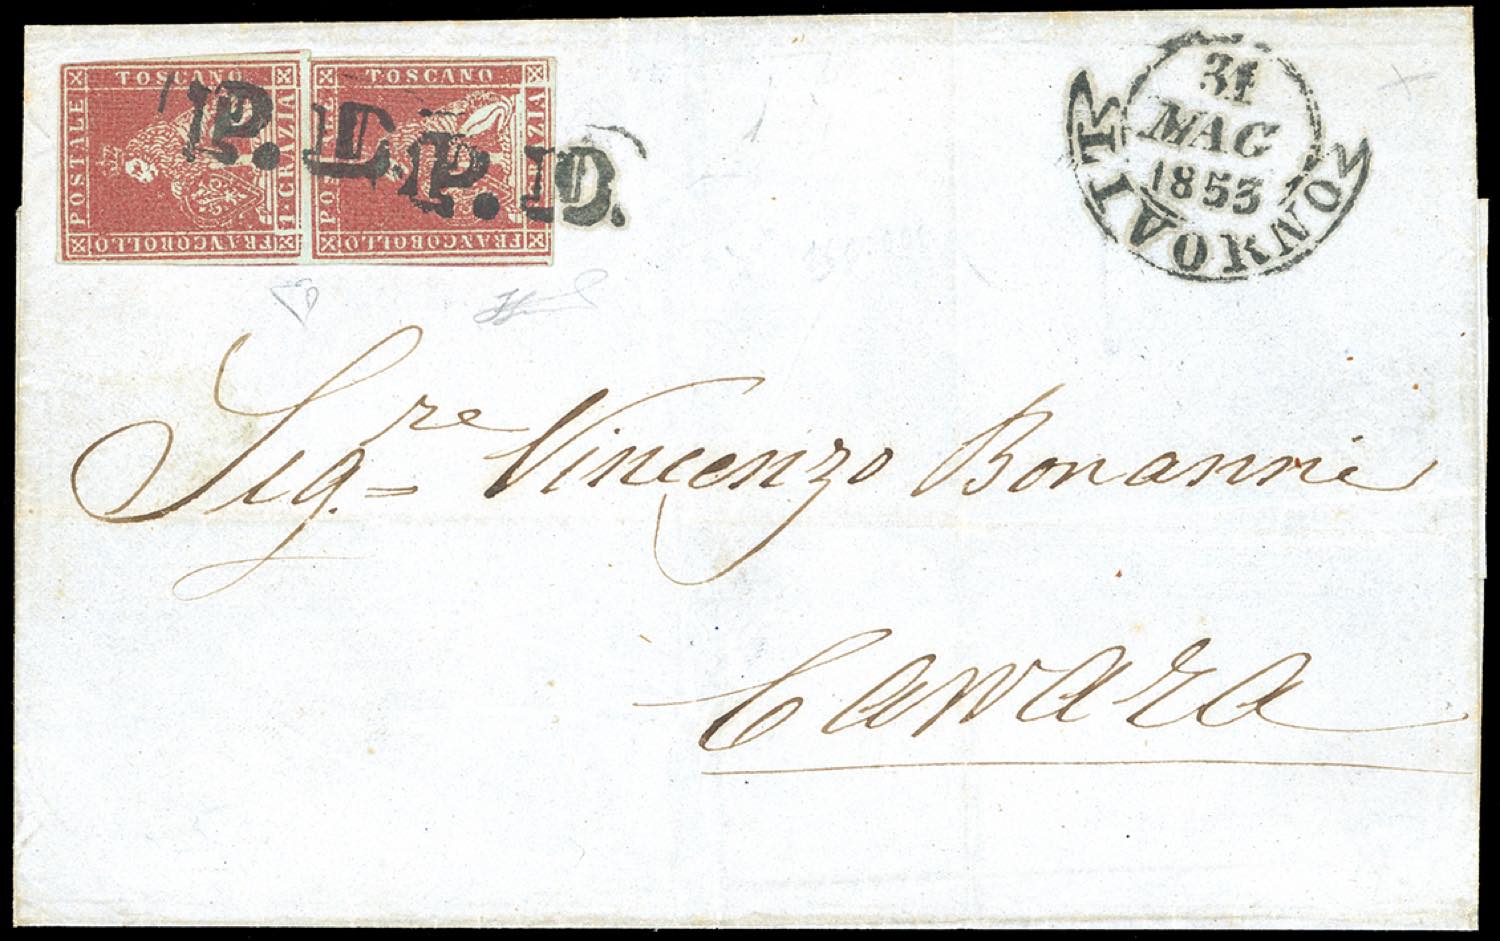 TOSCANO
POSTALE
1·GRAZIA
FRANCOBOLLO
TOSCANO
FRANCOBOLLO
P.D.
P.D.
31
MAG
1853
LIVORNO
Sig.re Vincenzo Bonanni
Carrara